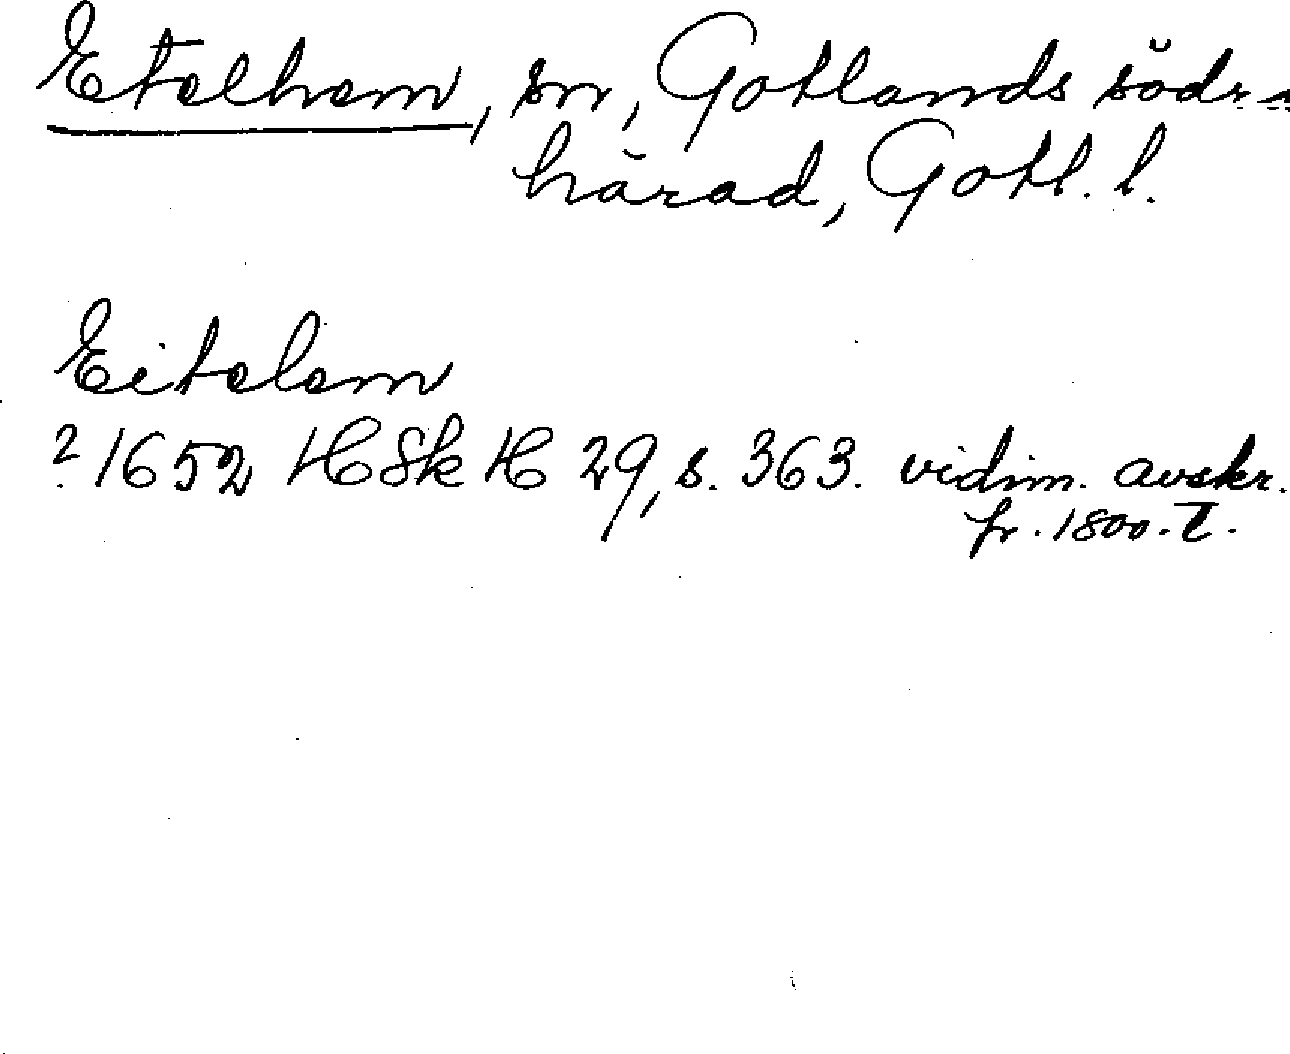 Etelhem, sn, Gotlands södra
härad, Gotl. l.
Eitelem
? 1652 HSkH 29, s. 363. vidim. avskr.
fr. 1800-t.